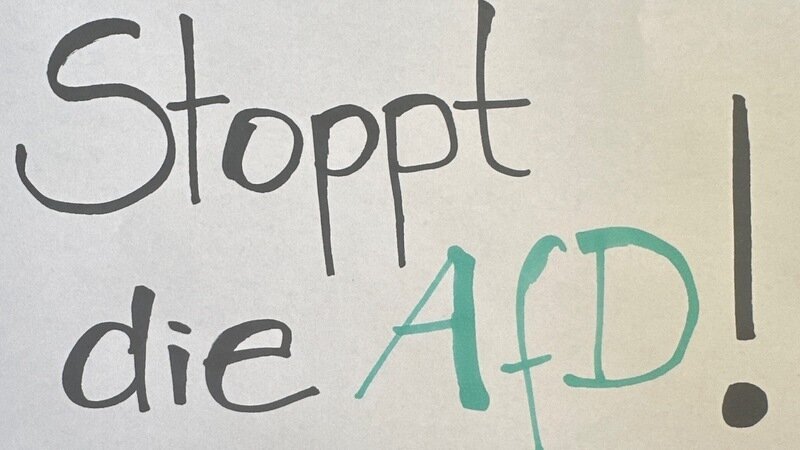 Stoppt
die AfD!